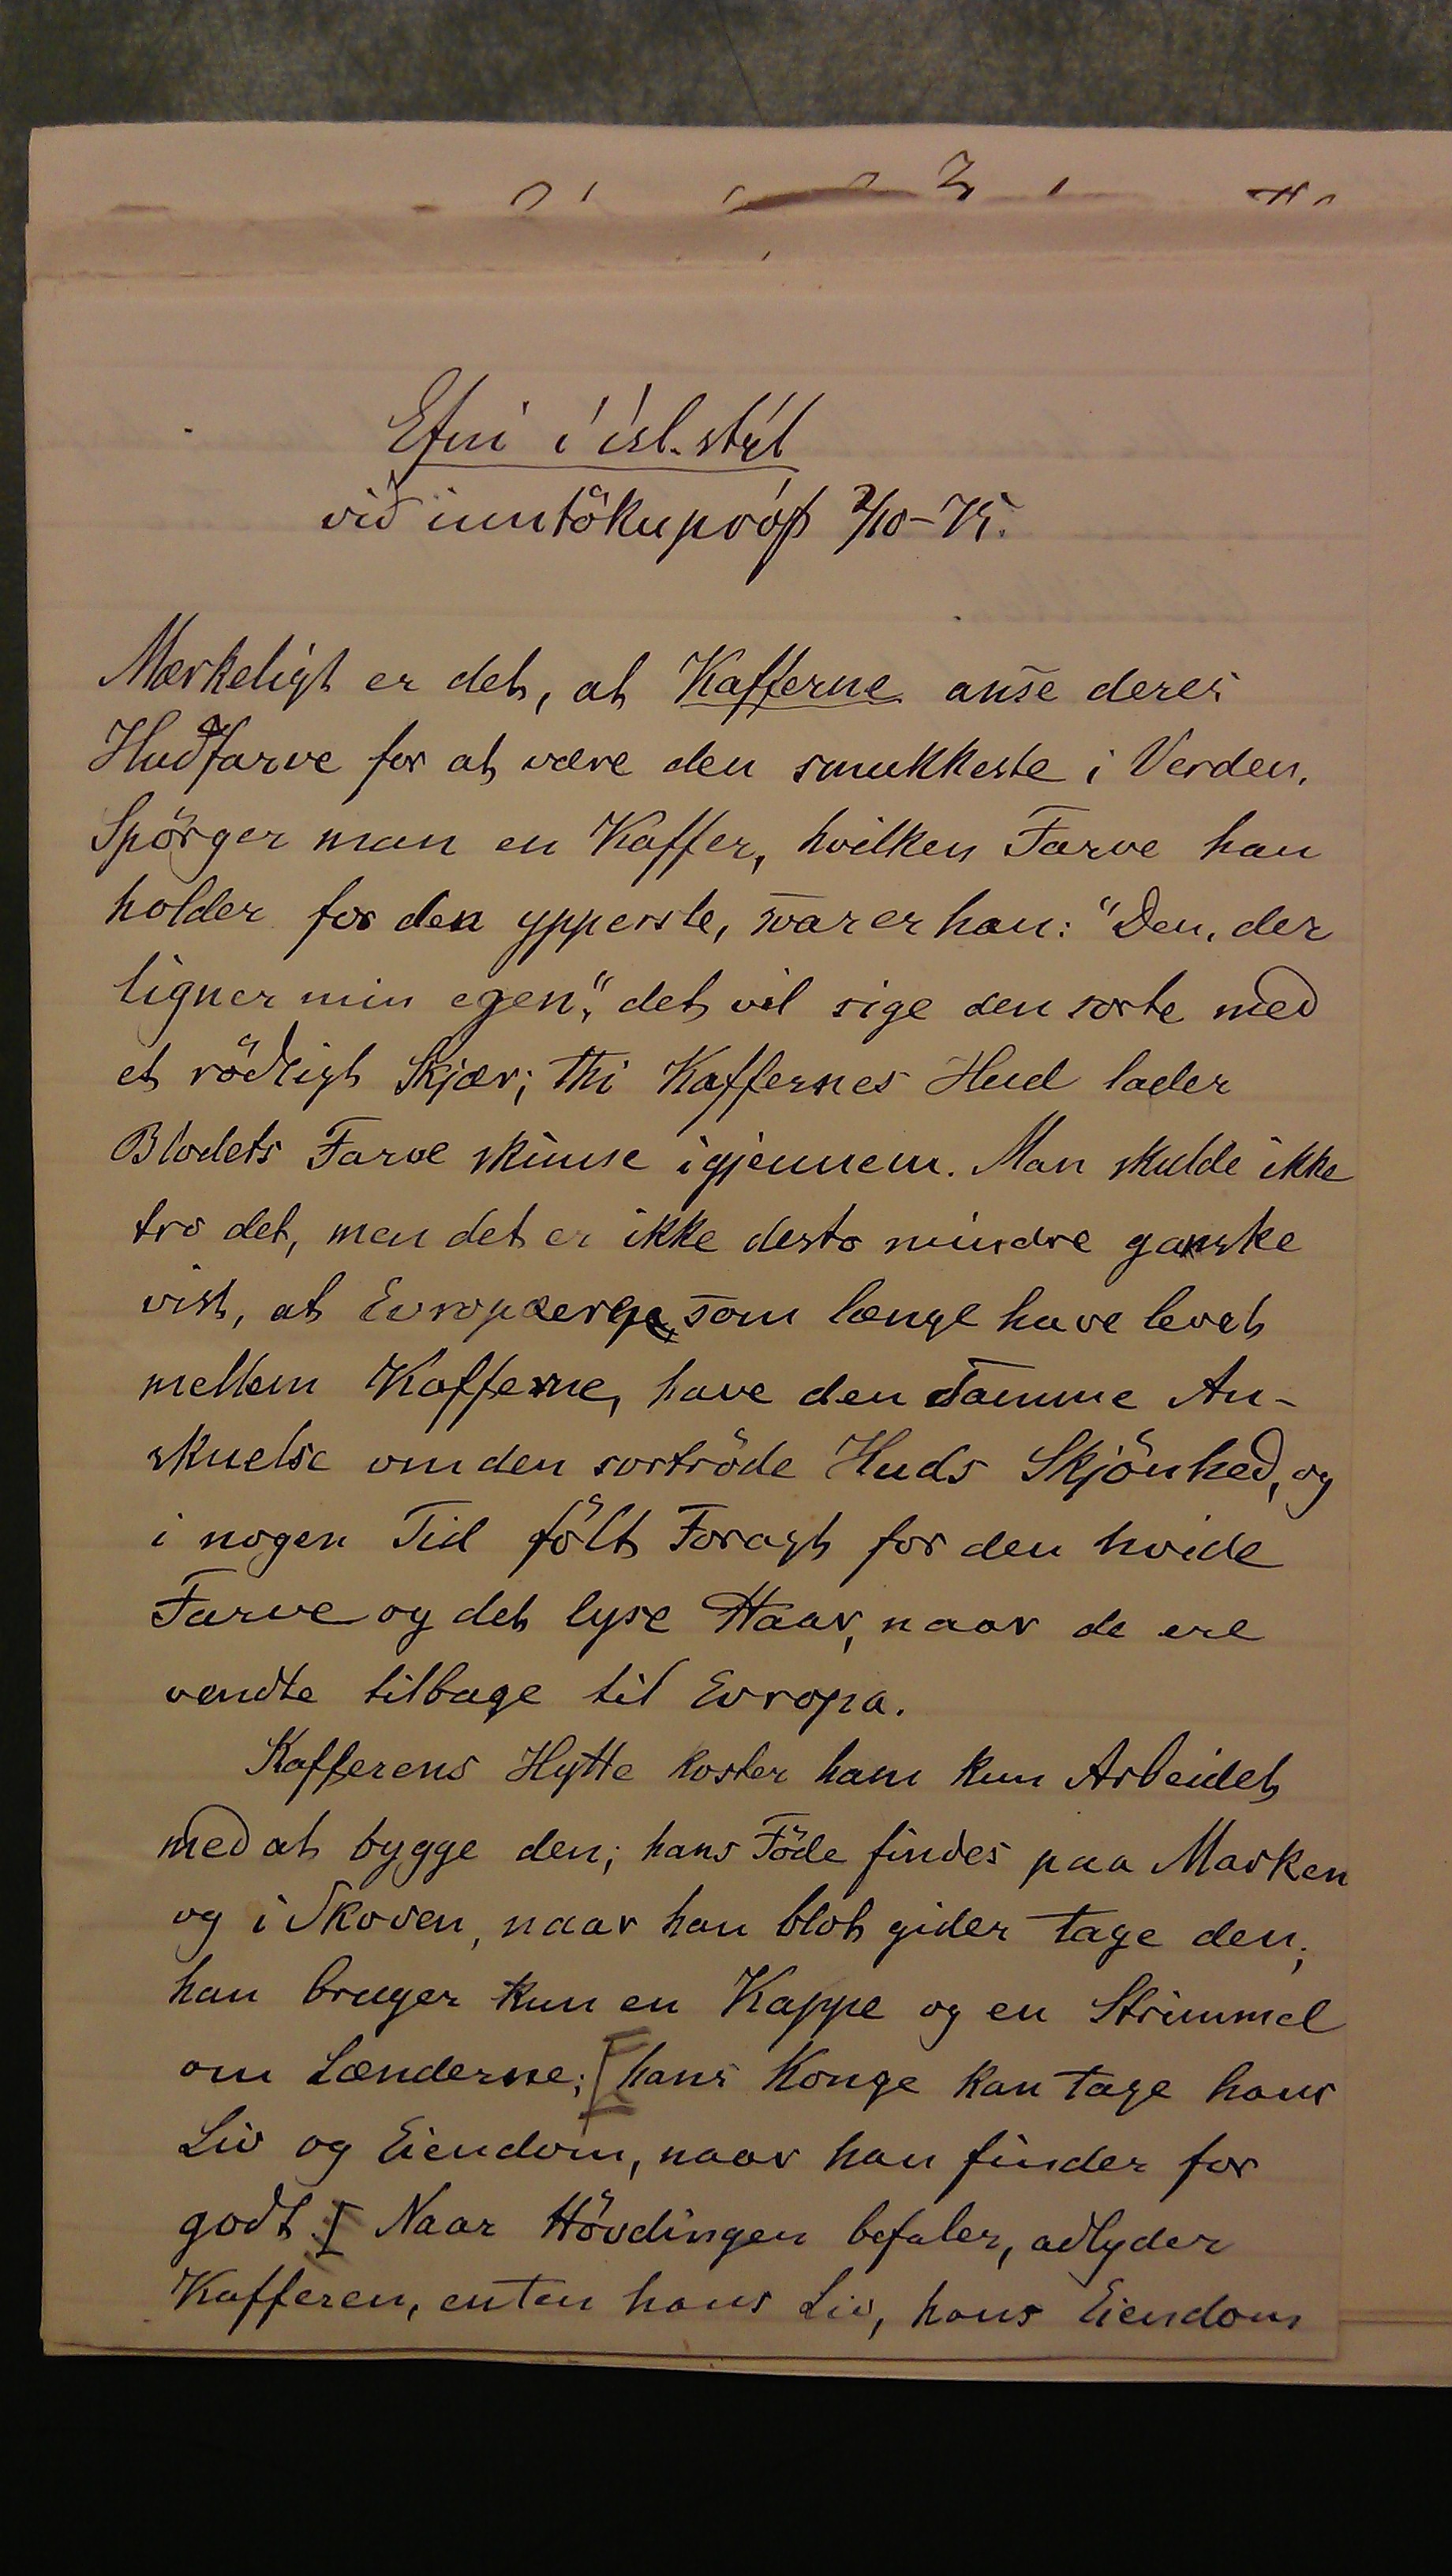 Efni í ísl. stýl
við inntökupróf 2/10-75.
Mærkeligt er det, at Kafferne anse deres
Hudfarve for at være den smukkeste i Verden.
Spörger man en Kaffer, hvilken Farve han
holder for den ypperste, svarer han: "Den, der
ligner min egen", det vil sige den sorte med
et rödligt Skjær; thi Kaffernes Hud lader
Blodets Farve skinne igjennem. Man skulde ikke
tro det, men det er ikke desto mindre ganske
vist, at Evropæerne, som længe have levet
mellem Kafferne, have den samme An-
skuelse om den sortröde Huds Skjönhed, og
i nogen Tid fölt Foragt for den hvide
Farve og det lyse Haar, naar de ere
vendte tilbage til Evropa.
Kafferens Hytte koster ham kun Arbeidet
med at bygge den; hans Föde findes paa Marken
og i Skoven, naar han blot gider tage den;
han bruger kun en Kappe og en Strimmel
om Lænderne; [hans Konge kan tage hans
Liv og Eiendom, naar han finder for
godt.] Naar Hövdingen befaler, adlyder
Kafferen, enten hans Liv, hans Eiendom